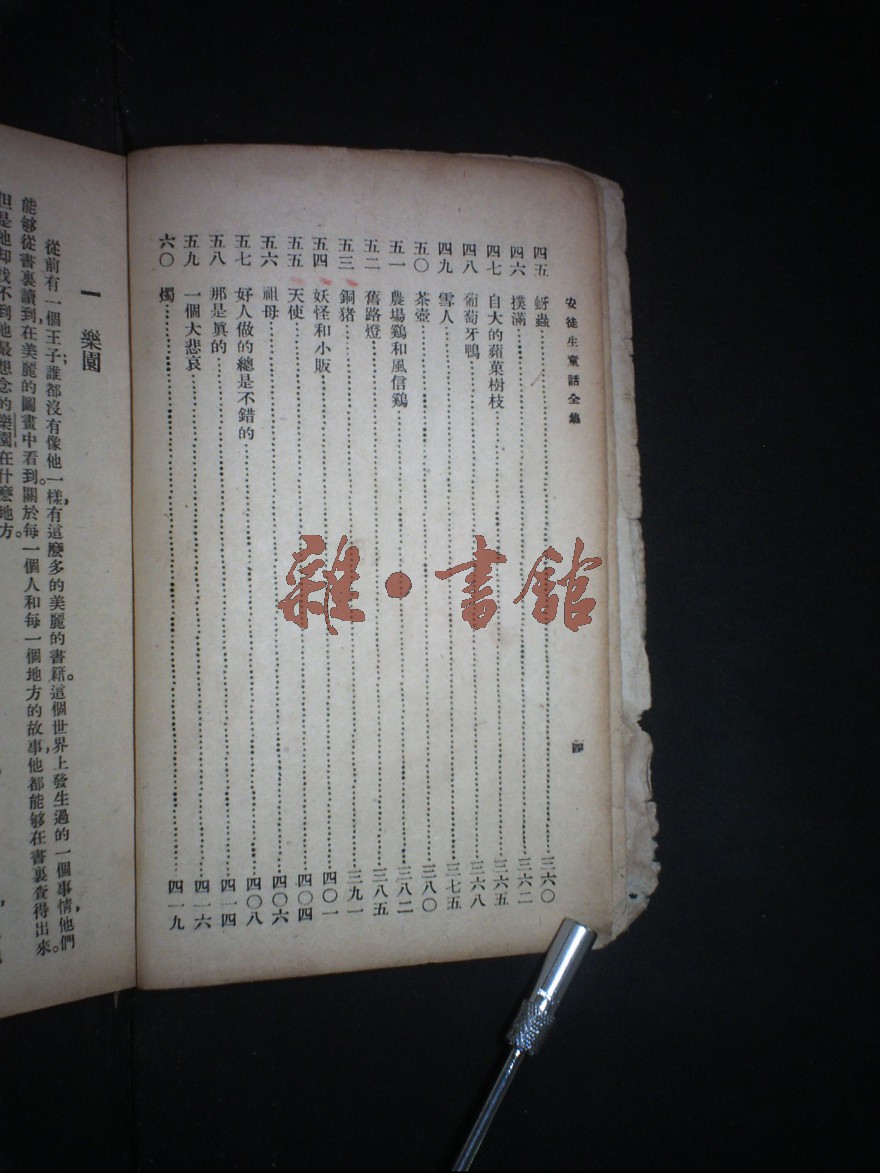 安徒生童話全集
四五 蚜蟲……三六〇
四六 撲滿……三六二
四七 自大的蘋菓樹枝……三六五
四八 葡萄牙鴨……三六八
四九 雪人……三七五
五〇 茶壺……三八〇
五一 農場鷄和風信鷄……三八二
五二 舊路燈……三八五
五三 銅猪……三九一
五四 妖怪和小販……四〇一
五五 天使……四〇四
五六 祖母……四〇六
五七 好人做的總是不錯的……四〇八
五八 那是眞的……四一四
五九 一個大悲哀……四一六
六〇 燭……四一九
四
雜·書館
一 樂園
從前有一個王子；誰都沒有像他一樣，有這麽多的美麗的書籍。這個世界上發生過的一個事情，他們
能够從書裏讀到，在美麗的圖畫中看到。關於每一個人和每一個地方的故事，他都能够在書裏查得出來。
但是他却找不到他最想念的樂園在什麽地方。